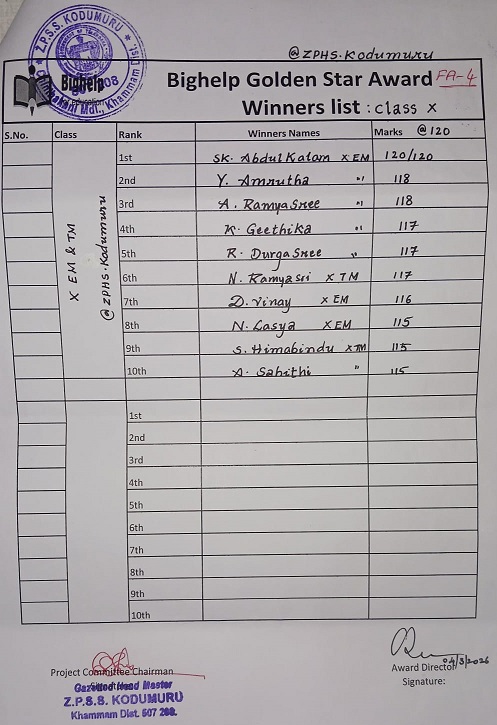 Z.P.S.S. KODUMURU
@ZPHS.Kodumuru
Bighelp
Bighelp Golden Star Award FA-4
Winners list : class X
S.No. Class Rank Winners Names Marks @120
X EM & TM
@ZPHS.Kodumuru
1st SK. Abdul Kalam X EM 120/120
2nd Y. Amrutha " 118
3rd A. RamyaSree " 118
4th K. Geethika " 117
5th R. DurgaSree " 117
6th N. Ramyasri X TM 117
7th D. Vinay X EM 116
8th N. Lasya X EM 115
9th S. Himabindu X TM 115
10th A. Sahithi " 115
1st
2nd
3rd
4th
5th
6th
7th
8th
9th
10th
Project Committee Chairman
Award Director 04/3/2026
Signature:
Gazetted Head Master
Z.P.S.S. KODUMURU
Khammam Dist. 507